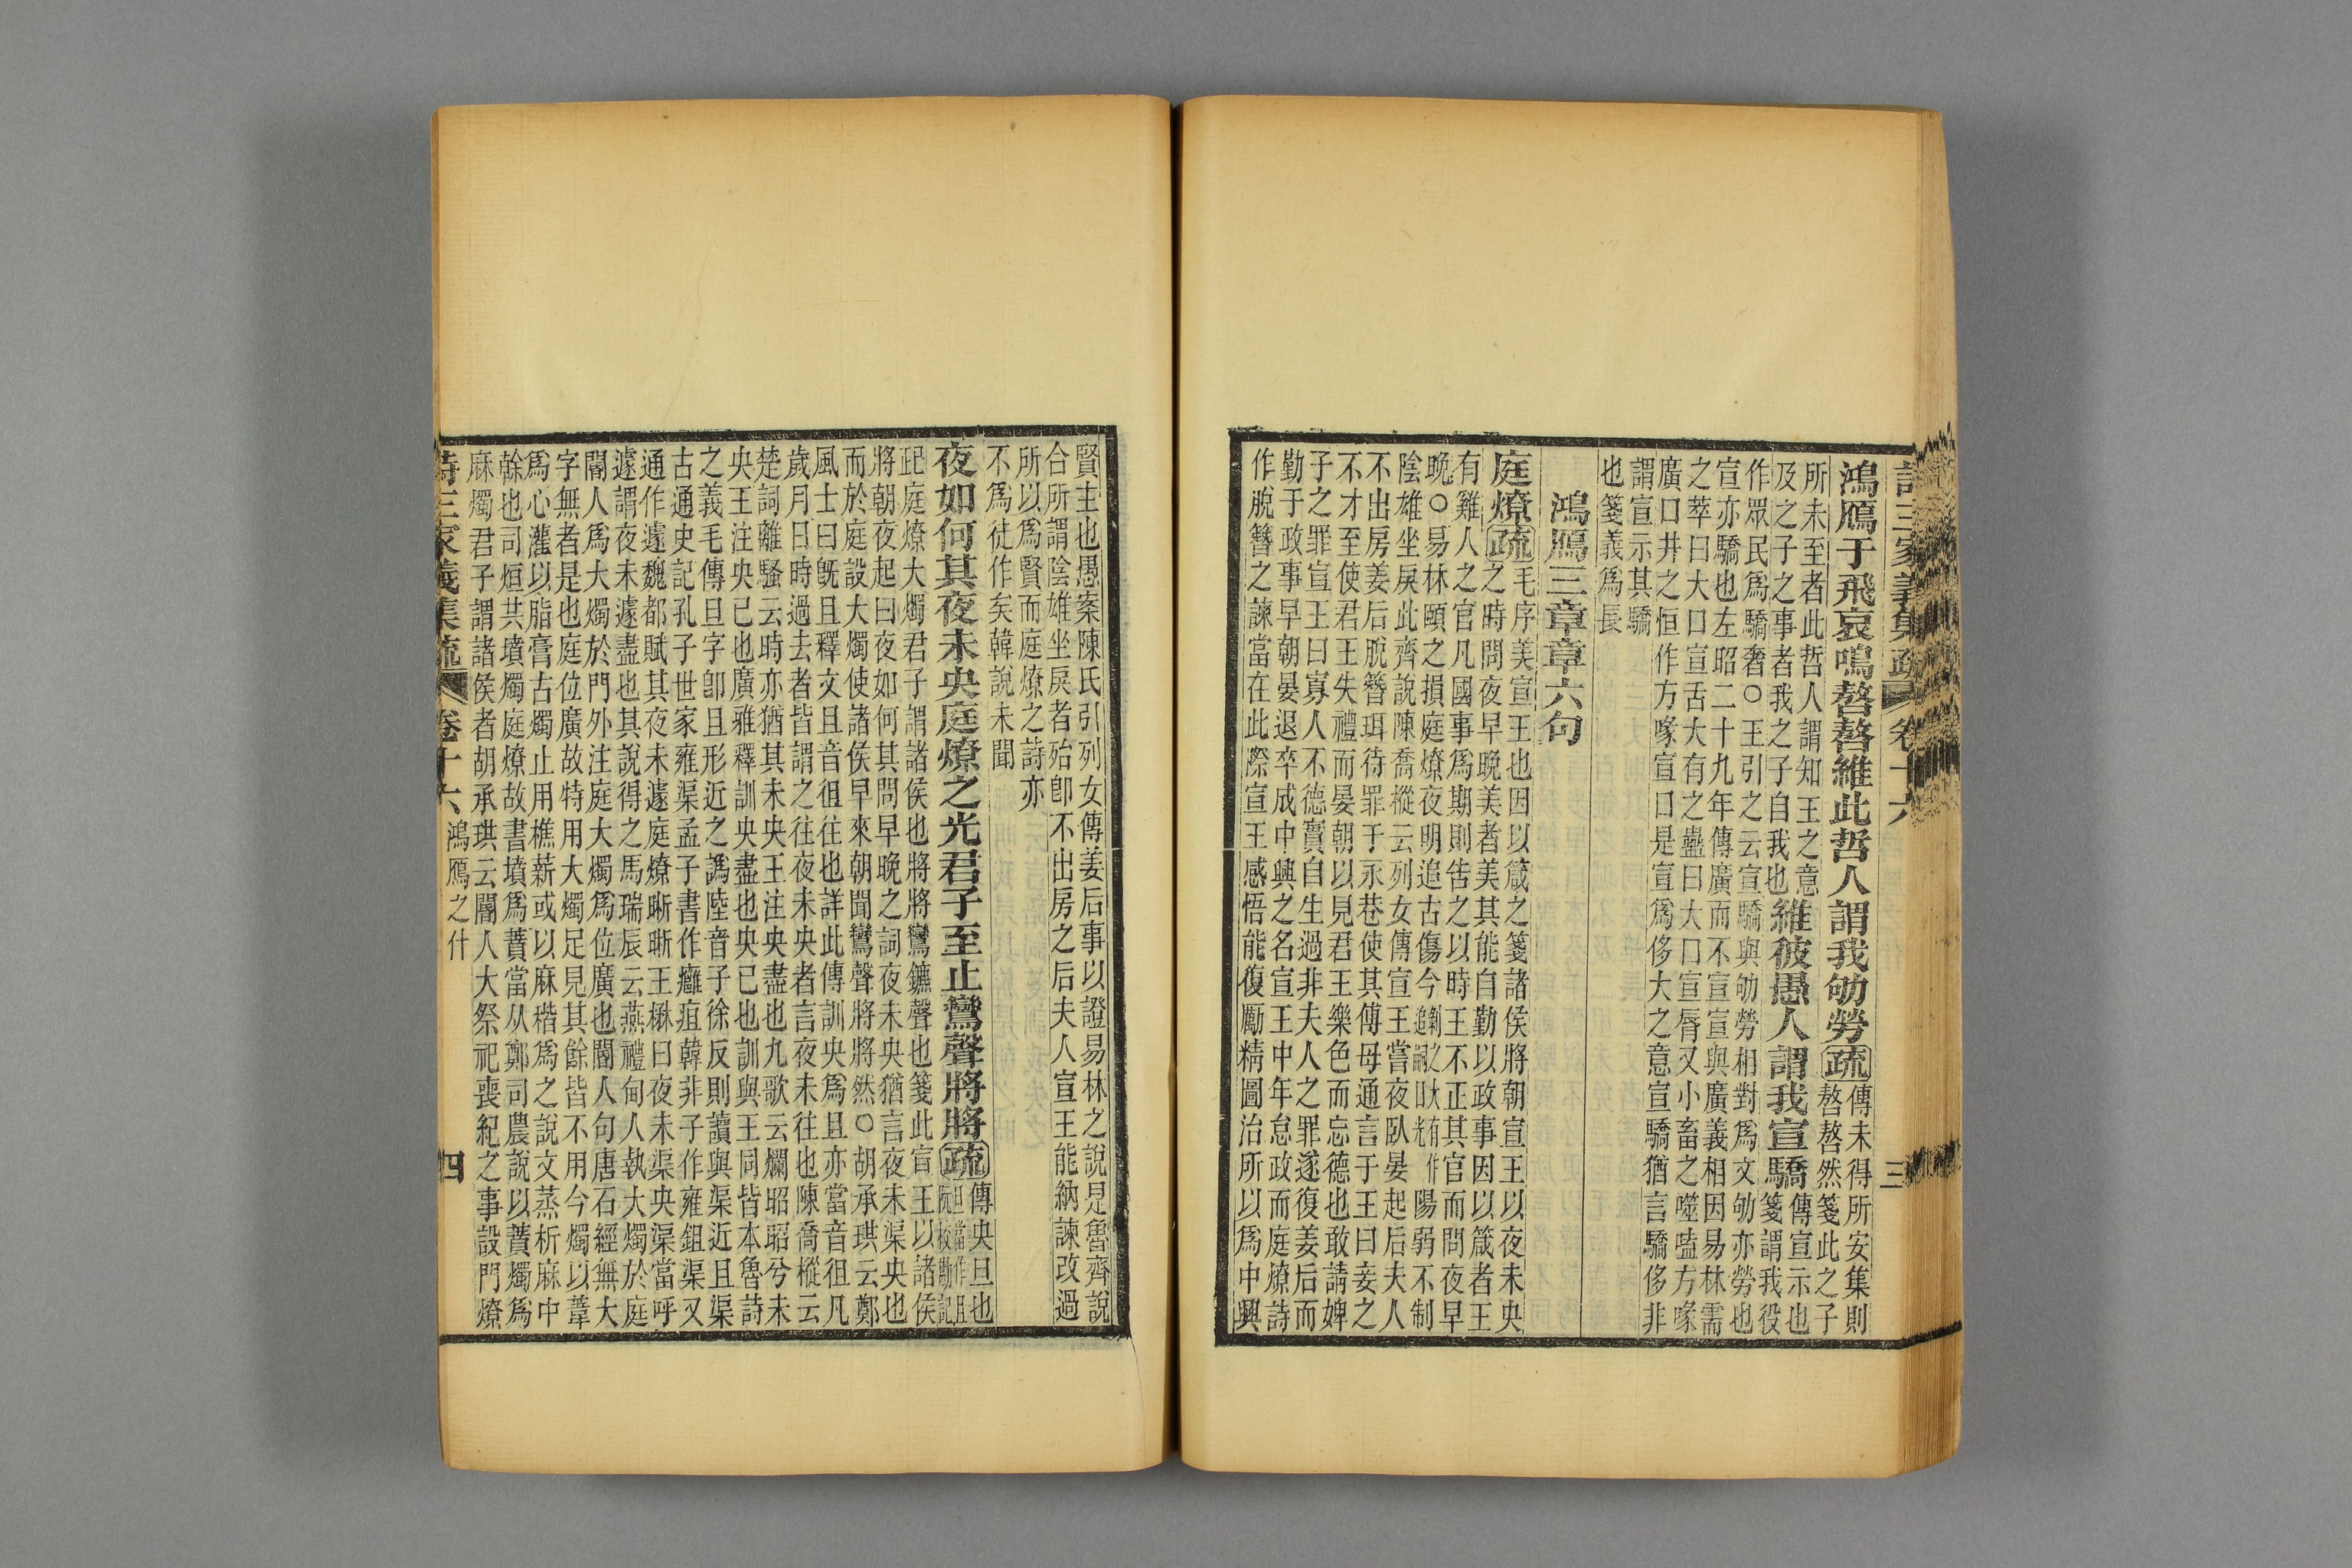 詩三家義集疏 卷十六 三
鴻鴈于飛哀鳴嗸嗸維此哲人謂我劬勞疏傳未得所安集則
嗸嗸然箋此之子
所未至者此哲人謂知王之意
及之子之事者我之子自我也維彼愚人謂我宣驕傳宣示也
箋謂我役
作眾民爲驕奢○王引之云宣驕與劬勞相對爲文劬亦勞也
宣亦驕也左昭二十九年傳廣而不宣宣與廣義相因易林需
之萃曰大口宣舌大有之蠱曰大口宣脣又小畜之噬嗑方喙
廣口井之恒作方喙宣口是宣爲侈大之意宣驕猶言驕侈非
謂宣示其驕
也箋義爲長
鴻鴈三章章六句
庭燎疏毛序美宣王也因以箴之箋諸侯將朝宣王以夜未央
之時問夜早晚美者美其能自勤以政事因以箴者王
有雞人之官凡國事爲期則告之以時王不正其官而問夜早
晚○易林頤之損庭燎夜明追古傷今陽弱不制
陰雄坐戾此齊說陳喬樅云列女傳宣王嘗夜臥晏起后夫人
不出房姜后脫簪珥待罪于永巷使其傅母通言于王曰妾之
不才至使君王失禮而晏朝以見君王樂色而忘德也敢請婢
子之罪宣王曰寡人不德實自生過非夫人之罪遂復姜后而
勤于政事早朝晏退卒成中興之名宣王中年怠政而庭燎詩
作脫簪之諫當在此際宣王感悟能復勵精圖治所以爲中興
賢主也愚案陳氏引列女傳姜后事以證易林之說是魯齊說
合所謂陰雄坐戾者殆卽不出房之后夫人宣王能納諫改過
所以爲賢而庭燎之詩亦
不爲徒作矣韓說未聞
夜如何其夜未央庭燎之光君子至止鸞聲將將疏傳央旦也
旦當作且
阮校勘記
庭燎大燭君子謂諸侯也將將鸞鑣聲也箋此宣王以諸侯
將朝夜起曰夜如何其問早晚之詞夜未央猶言夜未渠央也
而於庭設大燭使諸侯早來朝聞鸞聲將將然○胡承珙云鄭
風士曰旣且釋文且音徂往也詳此傳訓央爲且亦當音徂凡
歲月日時過去者皆謂之往夜未央者言夜未往也陳喬樅云
楚詞離騷云時亦猶其未央王注央盡也九歌云爛昭昭兮未
央王注央已也廣雅釋訓央盡也央已也訓與王同皆本魯詩
之義毛傳旦字卽且形近之譌陸音子徐反則讀與渠近且渠
古通史記孔子世家雍渠孟子書作癰疽韓非子作雍鉏渠又
通作遽魏都賦其夜未遽庭燎晣晣王楙曰夜未渠央渠當呼
遽謂夜未遽盡也其說得之馬瑞辰云燕禮甸人執大燭於庭
閽人爲大燭於門外注庭大燭爲位廣也閽人句唐石經無大
字無者是也庭位廣故特用大燭足見其餘皆不用今燭以葦
爲心灌以脂膏古燭止用樵薪或以麻稭爲之說文蒸析麻中
榦也司烜共墳燭庭燎故書墳爲蕡當从鄭司農說以蕡燭爲
麻燭君子謂諸侯者胡承珙云閽人大祭祀喪紀之事設門燎
詩三家義集疏 卷十六 鴻鴈之什 四